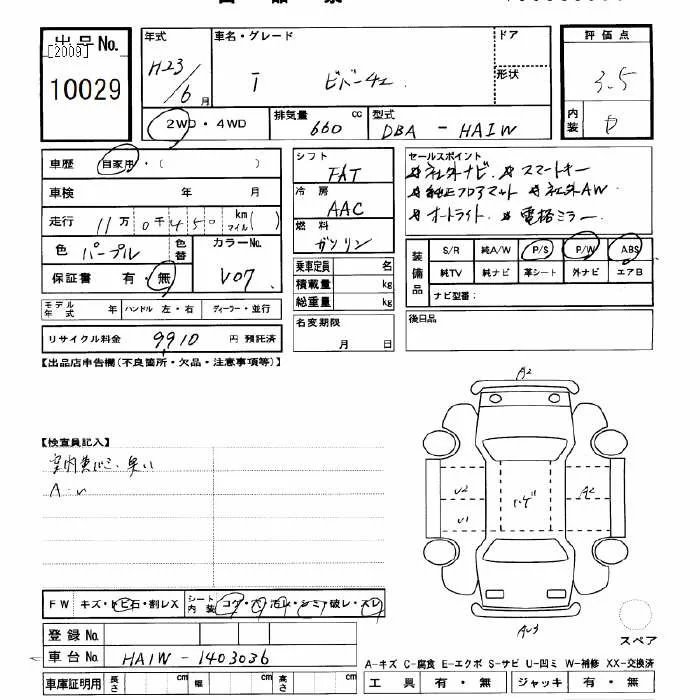 出品No.
[2009]
10029
年式
H23/6月
車名・グレード
I ビバーチェ
ドア
形状
評価点
3.5
内装
D
2WD・4WD
排気量 660 cc
型式 DBA - HA1W
車歴 自家用・( )
車検 年 月
走行 11万0千450 km マイル( )
色 パープル
色替
カラーNo. V07
保証書 有・無
モデル年式 年 ハンドル 左・右 ディーラー・並行
リサイクル料金 9910 円 預託済
シフト
FAT
冷房
AAC
燃料
ガソリン
乗車定員 名
積載量 kg
総重量 kg
名変期限
月 日
セールスポイント
社外ナビ. スマートキー
純正フロアマット 社外AW
オートライト 電格ミラー
装備品
S/R 純A/W P/S P/W ABS
純TV 純ナビ 革シート 外ナビ エアB
ナビ型番:
後日品
【出品店申告欄(不良箇所・欠品・注意事項等)】
【検査員記入】
A2
U2
U1
A2
FW キズ・トビ石・割レX シート内装 コゲ・穴・汚レ・シミ・破レ・スレ
登録No.
車台No. HA1W - 1403036
車庫証明用 長さ cm 幅 cm 高さ cm
スペア
A-キズ C-腐食 E-エクボ S-サビ U-凹ミ W-補修 XX-交換済
工具 有・無 ジャッキ 有・無